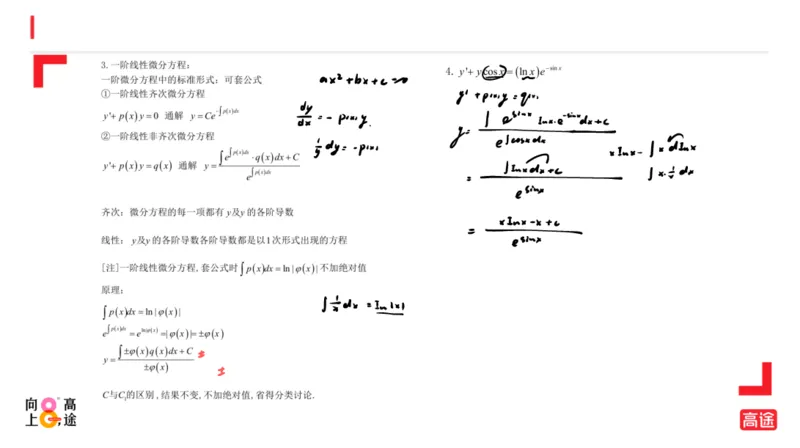 3. 一阶线性微分方程:
一阶微分方程中的标准形式: 可套公式
①一阶线性齐次微分方程
y'+p(x)y=0 通解 y=Ce^{-∫p(x)dx}
②一阶线性非齐次微分方程
y'+p(x)y=q(x) 通解 y=\frac{∫e^{∫p(x)dx}·q(x)dx+C}{e^{∫p(x)dx}}
齐次: 微分方程的每一项都有y及y的各阶导数
线性: y及y的各阶导数各阶导数都是以1次形式出现的方程
[注]一阶线性微分方程,套公式时∫p(x)dx=ln|φ(x)|不加绝对值
原理:
∫p(x)dx=ln|φ(x)|
e^{∫p(x)dx}=e^{ln|φ(x)|}=|φ(x)|=±φ(x)
y=\frac{∫±φ(x)q(x)dx+C}{±φ(x)}
±
C与C₁的区别,结果不变,不加绝对值,省得分类讨论.
ax²+bx+c=0
\frac{dy}{dx}=-p(x)y.
\frac{1}{y}dy=-p(x)
∫\frac{1}{x}dx=ln|x|
4. y'+ycosx=(lnx)e^{-sinx}
y'+p(x)y=q(x).
y=\frac{∫e^{sinx}lnx·e^{-sinx}dx+c}{e^{∫cosxdx}}
=\frac{∫lnxdx+c}{e^{sinx}}
=\frac{xlnx-x+c}{e^{sinx}}
xlnx-∫xdlnx
∫x·\frac{1}{x}dx
向上高途
高途